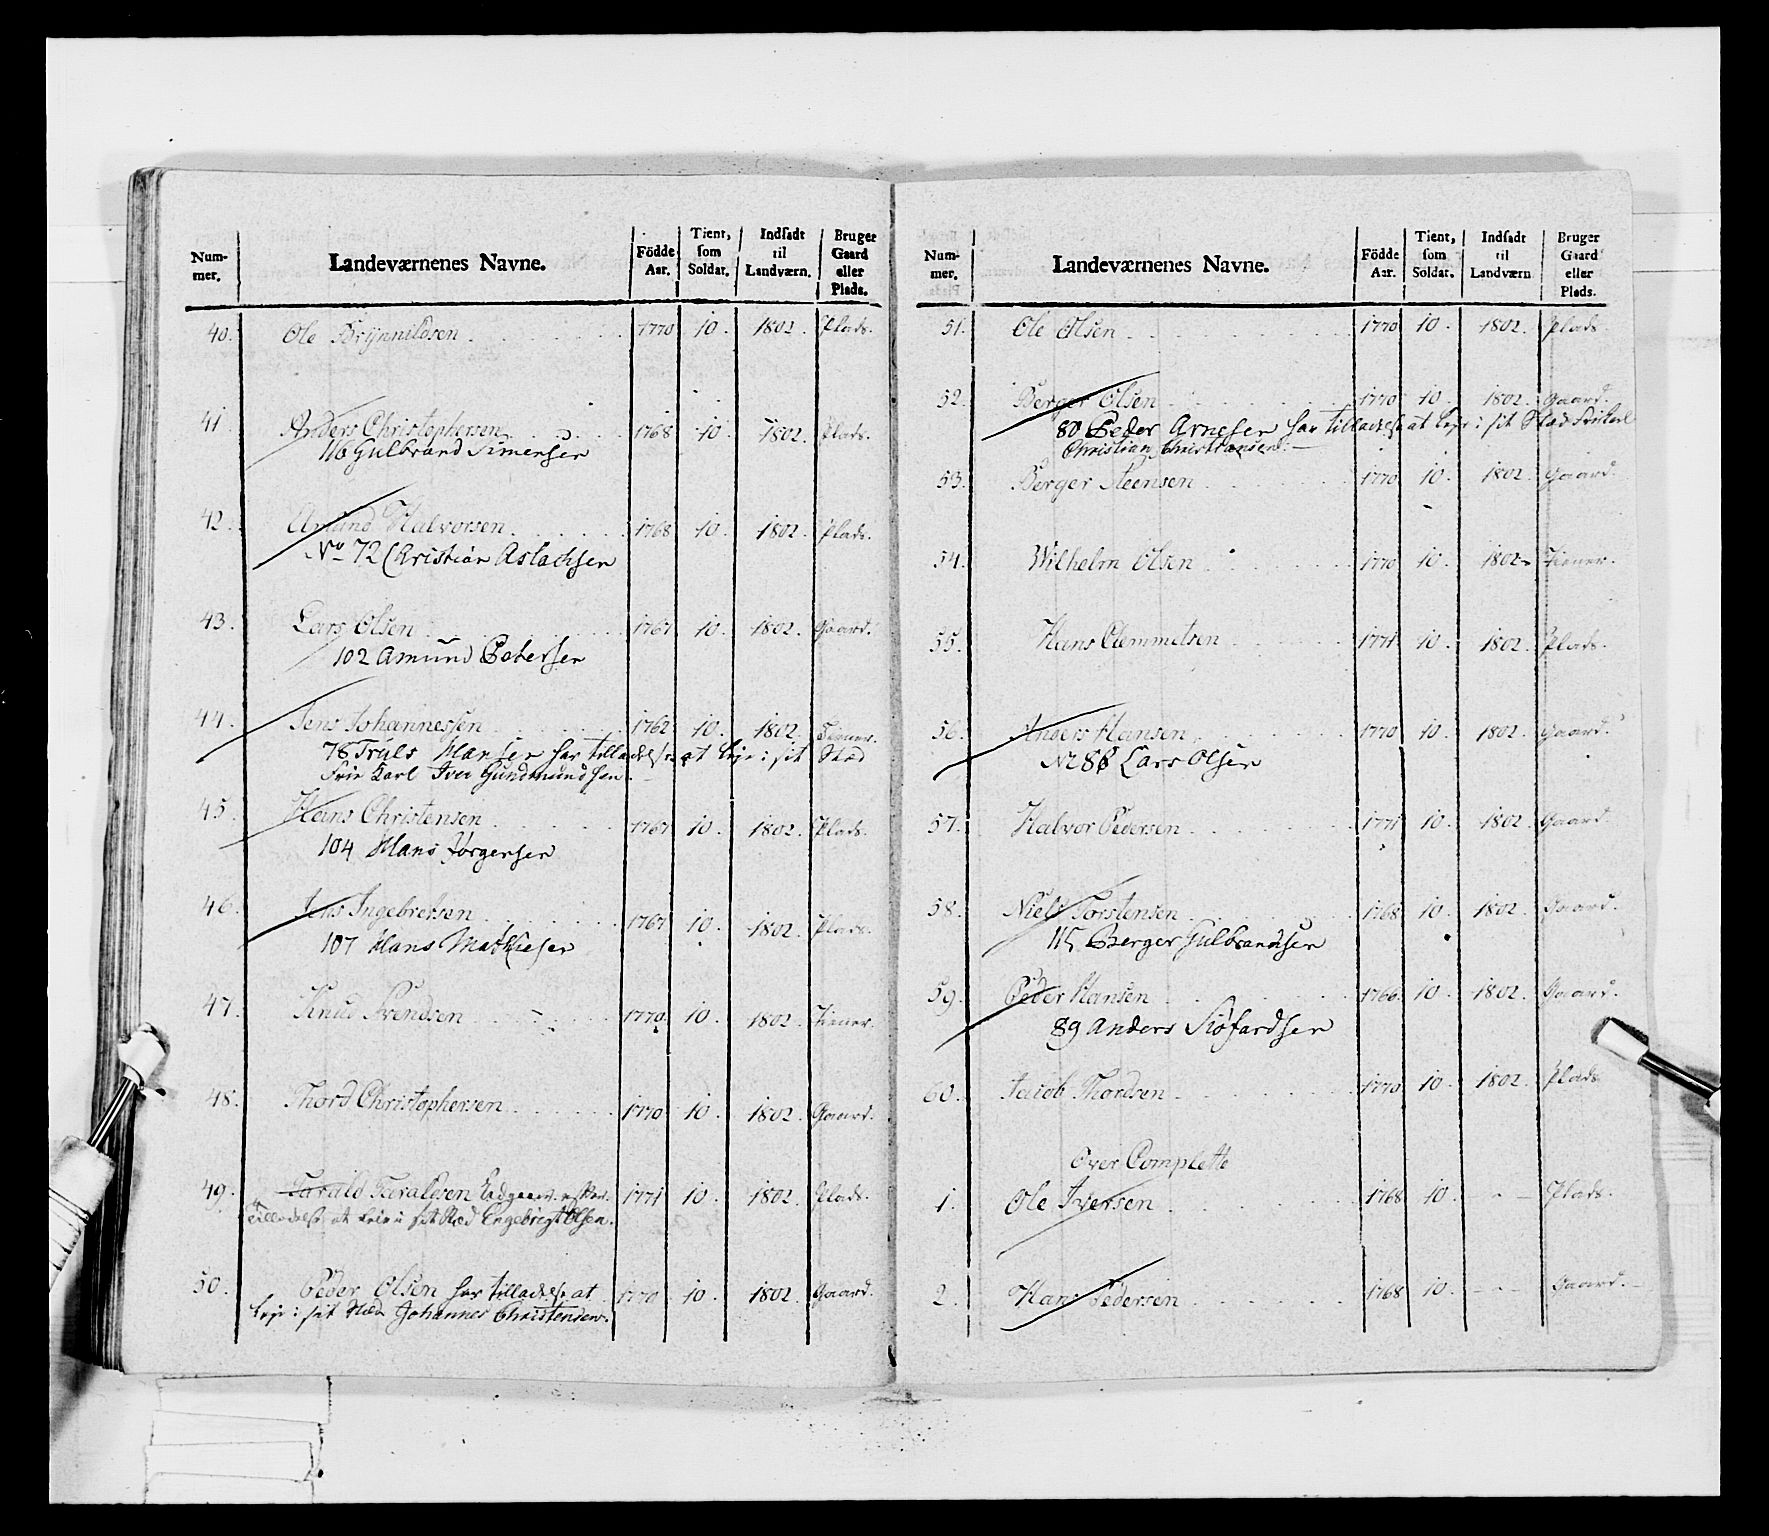 Num- mer. Landeværnenes Navne. Födde Aar. Tient, som Soldat. Indsadt til Landværn. Bruger Gaard eller Plads.
40. Ole Brynnildsen 1770 10. 1802. Plads.
41. Anders Christophersen 1768 10. 1802. Plads.
116 Gulbrand Simensen
42. Amund Halvorsen 1768 10. 1802. Plads.
No 72 Christian Aslachsen
43. Lars Olsen 1767 10. 1802. Gaard.
102 Amund Pedersen
44. Jens Johannessen 1762 10. 1802. Tiener.
78 Truls Hansen har tilladelse at leje i sit Stæd
Frie Karl Iver Gundmundsen.
45. Hans Christensen 1767 10. 1802. Plads.
104 Hans Jørgensen
46. Jens Ingebretsen 1767 10. 1802. Plads.
107 Hans Mathiesen
47. Knud Svendsen 1770 10. 1802. Tiener.
48. Thord Christophersen 1770 10. 1802. Gaard.
49. Tarald Taraldsen 1771 10. 1802. Plads.
tilladelse at leie i sit Stæd Engebrigt Olsen.
50. Peder Olsen har tilladelse at 1770 10. 1802. Gaard.
leje i sit Stæd Johannes Christensen.
Num- mer. Landeværnenes Navne. Födde Aar. Tient, som Soldat. Indsadt til Landværn Bruger Gaard eller Plads.
51. Ole Olsen 1770 10. 1802. Plads.
52. Berger Olsen 1770 10. 1802. Gaard.
80 Peder Arnesen har tilladelse at leje i sit Stæd Frikarl
Christian Christiansen.
53. Berger Steensen 1770 10. 1802. Gaard.
54. Wilhelm Olsen 1770 10. 1802. Tiener.
55. Hans Clemmetsen 1771 10. 1802. Plads.
56. Anders Hansen 1770 10. 1802. Gaard.
No 86 Lars Olsen
57. Halvor Pedersen 1771 10. 1802. Gaard.
58. Niels Torstensen 1768 10. 1802. Gaard.
115 Berger Gulbrandsen
59. Peder Hansen 1766. 10. 1802. Gaard.
89 Anders Siøfardsen
60. Jacob Thordsen 1770 10. 1802. Plads.
Over Complette
1. Ole Iversen 1768 10. - - Plads.
2. Hans Pedersen 1768 10. - - Gaard.